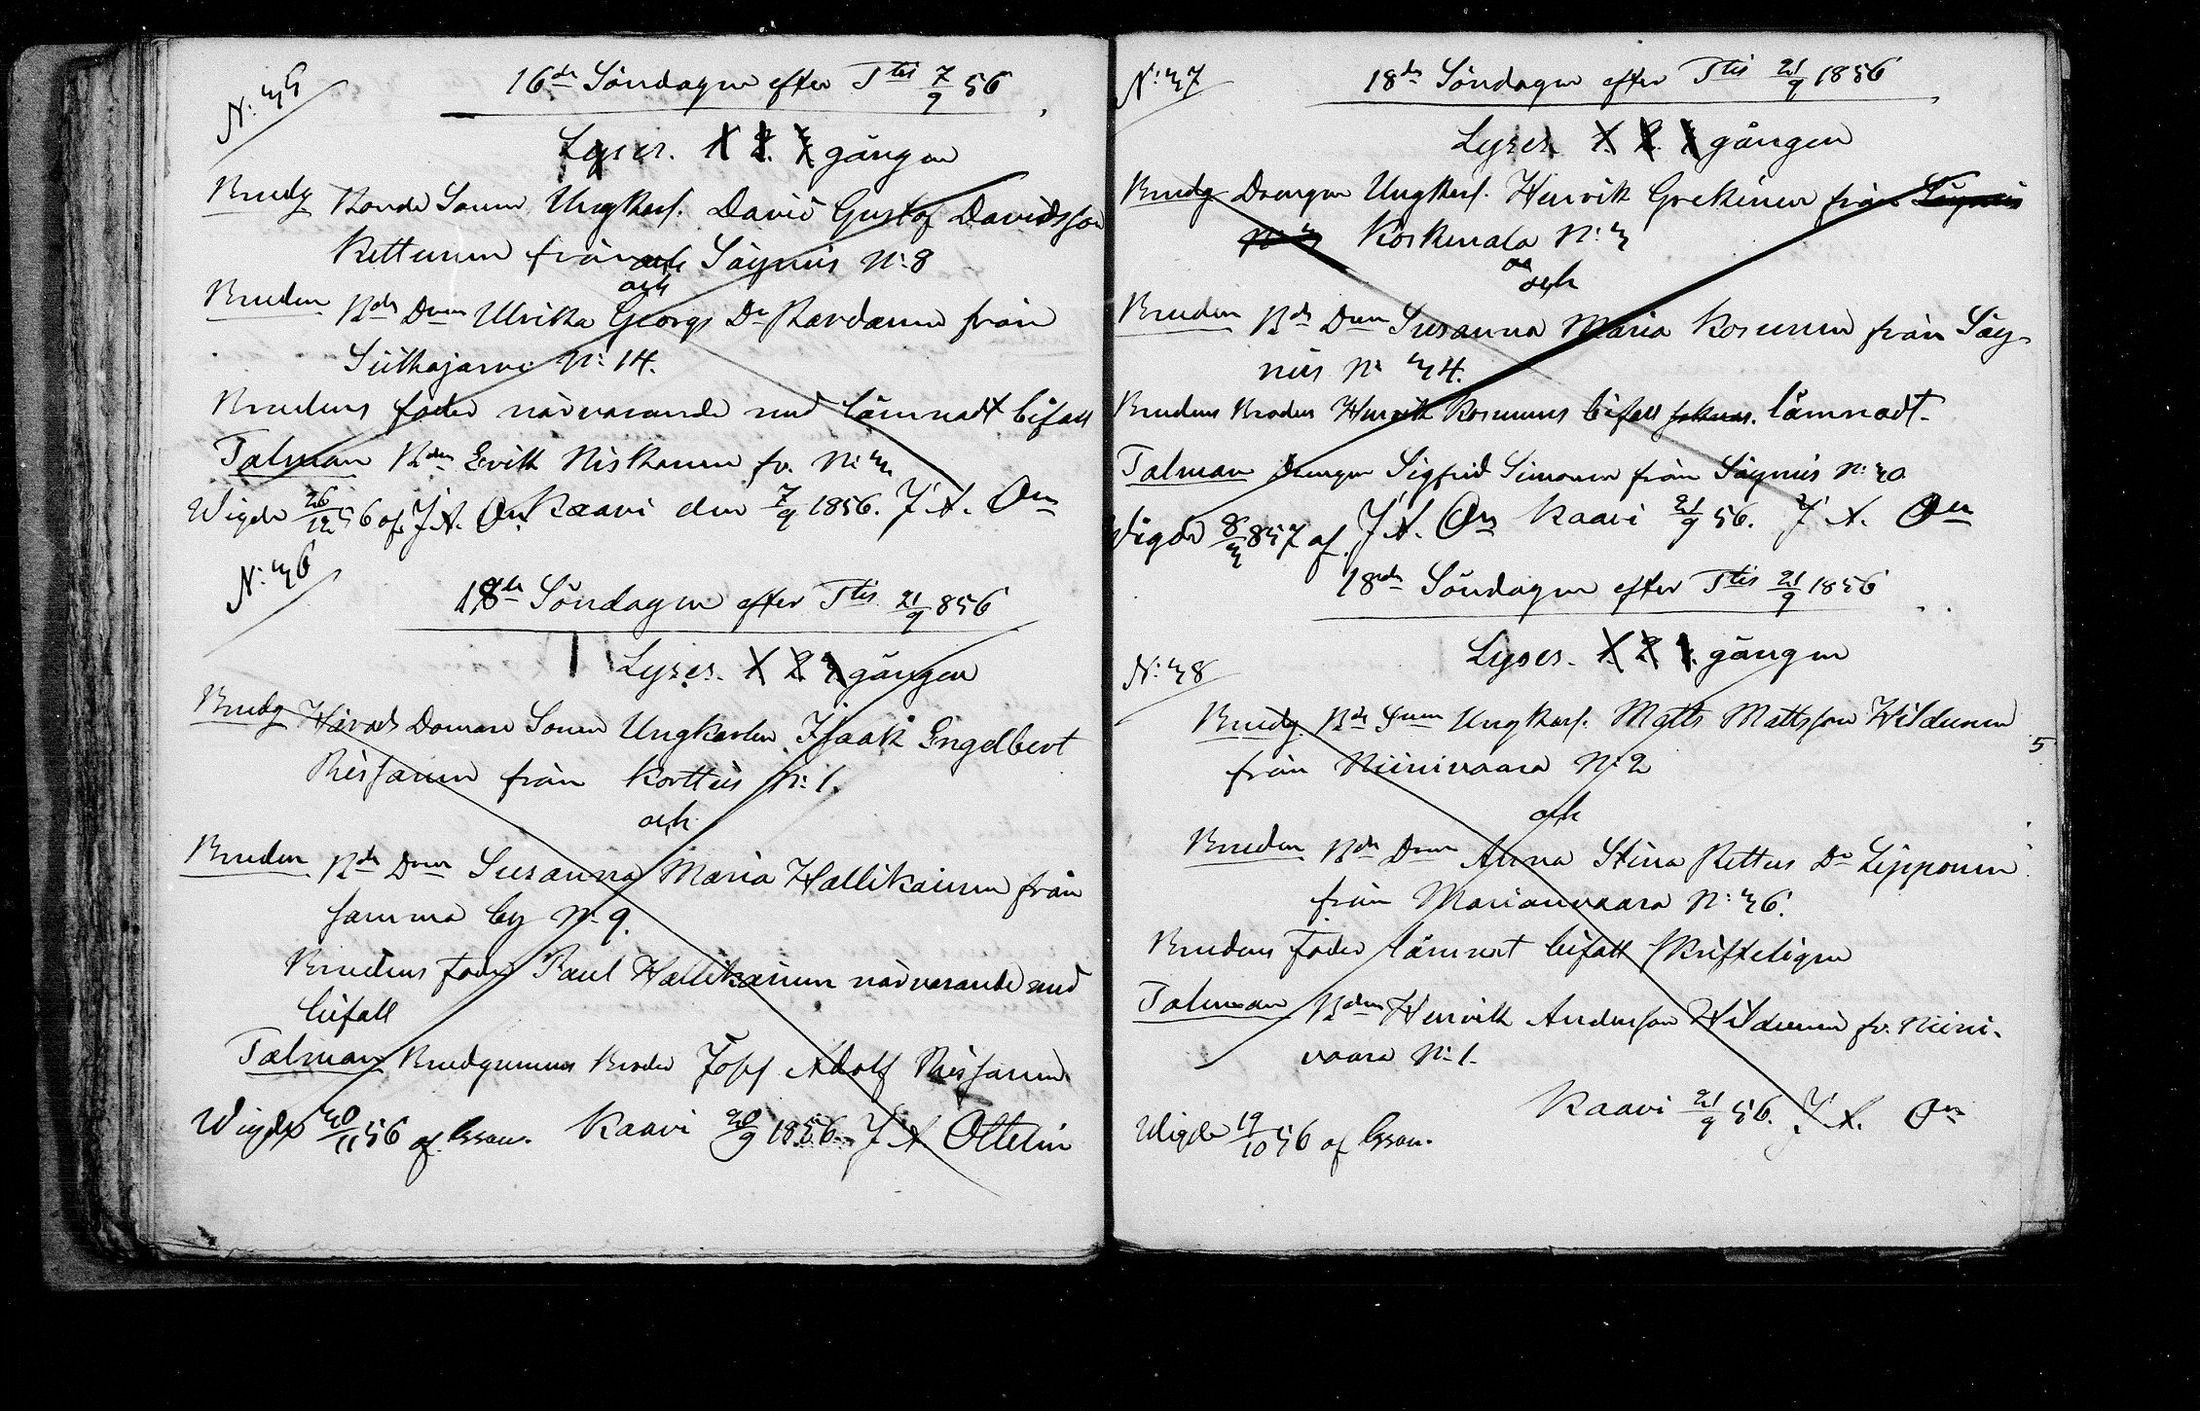 N:35
16de Söndagen efter Ttis 7/9 56
Lyses. 1 2. 3 gången
Brudg Bonde Sonen Ungkarl. David Gustaf Davidsson
Kettunen från Säyneis N:8
och
Bruden Bde Dren Ulrika Georgs Dr Karvanen från
Siikajarvi N:14.
Brudens fader närvarande med lämnadt bifall
Talman Bden Erik Niskanen fr. N:3
Wigde 26/12 56 af J. A. On Kaavi den 7/9 1856. J. A. On
N:36
18de Söndagen efter Ttis 21/9 856
Lyses. 1 2 3 gången
Brudg Härads Domare Sonen Ungkarlen Isaak Engelbert
Riissanen från Korttis N:1.
och
Bruden Bde Dren Susanna Maria Hallikainen från
samma by N:9.
Brudens fader Paul Hallikainen närvarande med
bifall
Talman Brudgumens Broder Josef Adolf Riissanen
Wigde 30/11 56 af Essen. Kaavi 20/9 1856. J A Ottelin
N:37
18de Söndagen efter Ttis 21/9 1856
Lyses. 1. 2. 3 gången
Brudg Drengen Ungkarl. Henrik Grekinen från Säyneis
N:3 Koskenala N:3
och
Bruden Bde Dren Susanna Maria Kosunen från Säy-
neis N: 34.
Brudens Broders Henrik Kosunens bifall lämnadt.
Talman Drengen Sigfrid Simonen från Säyneis N:30
Wigde 8/3 857 af J. A. On Kaavi 21/9 56. J. A. On
18nde Söndagen efter Ttis 21/9 1856
N:38
Lyses. 1. 2 3. gången
Brudg. Bde Sonen Ungkarl. Matts Mattsson Hildunen
från Niinivaara N:2
och
Bruden Bde Dren Anna Stina Petters Dr Lipponen
från Marianvaara N:36.
Brudens Fader lämnat bifall skrifteligen
Talman Bden Henrik Andersson Hildunen fr. Niini-
vaara N:1.
Kaavi 21/9 56. J. A. On
Wigde 19/10 56 af Essen.
5